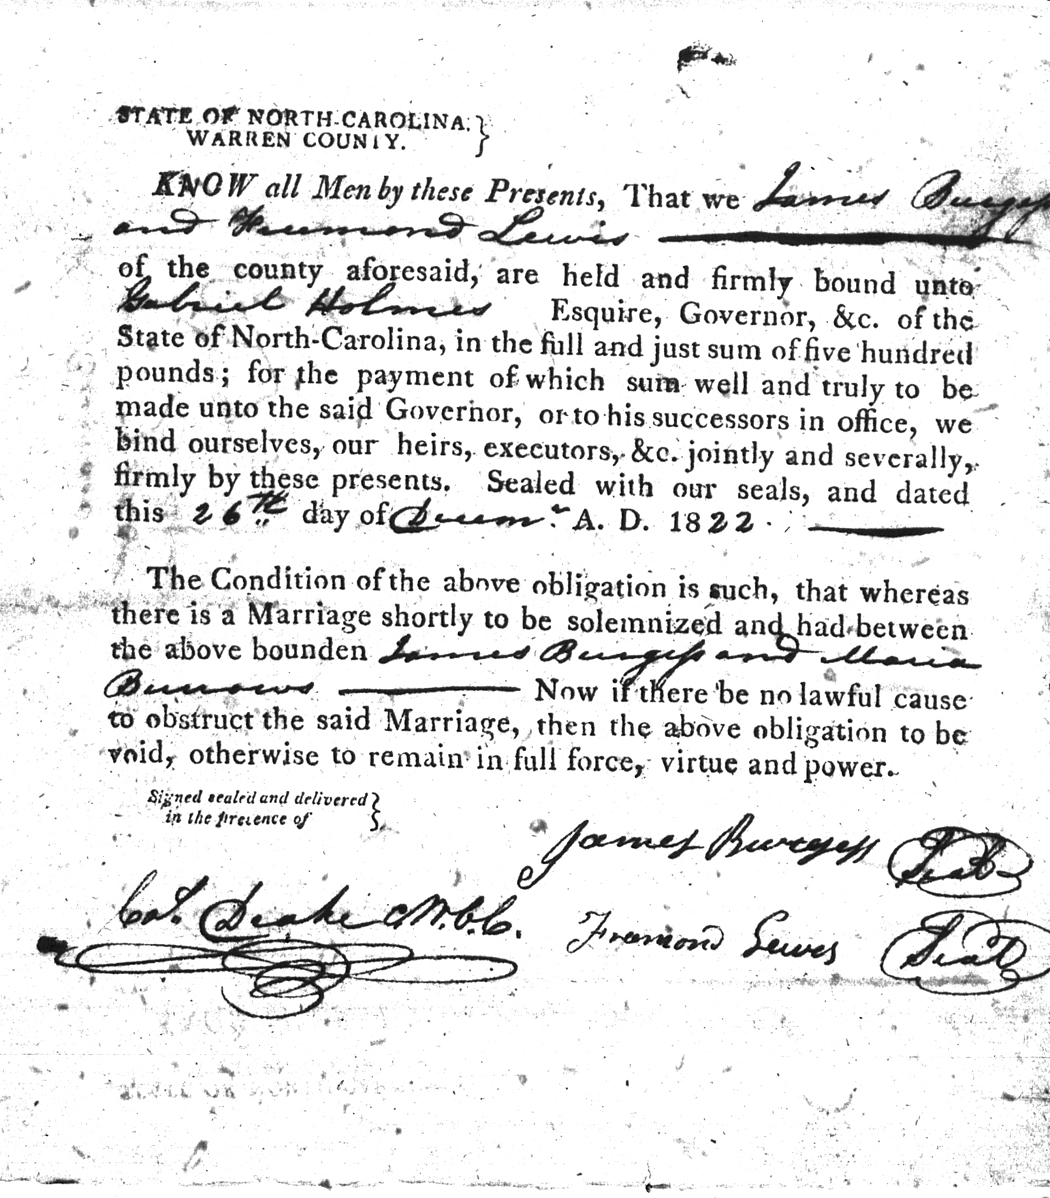 STATE OF NORTH-CAROLINA.
WARREN COUNTY.
KNOW all Men by these Presents, That we James Burgess
and Freemond Lewis
of the county aforesaid, are held and firmly bound unto
Gabriel Holmes Esquire, Governor, &c. of the
State of North-Carolina, in the full and just sum of five hundred
pounds; for the payment of which sum well and truly to be
made unto the said Governor, or to his successors in office, we
bind ourselves, our heirs, executors, &c. jointly and severally,
firmly by these presents. Sealed with our seals, and dated
this 26th day of Decemr. A. D. 1822.
The Condition of the above obligation is such, that whereas
there is a Marriage shortly to be solemnized and had between
the above bounden James Burgess and Maria
Burrows Now if there be no lawful cause
to obstruct the said Marriage, then the above obligation to be
void, otherwise to remain in full force, virtue and power.
Signed sealed and delivered
in the presence of
James Burgess Seal
Drake C.W.C.C.
Framond Lewes Seal